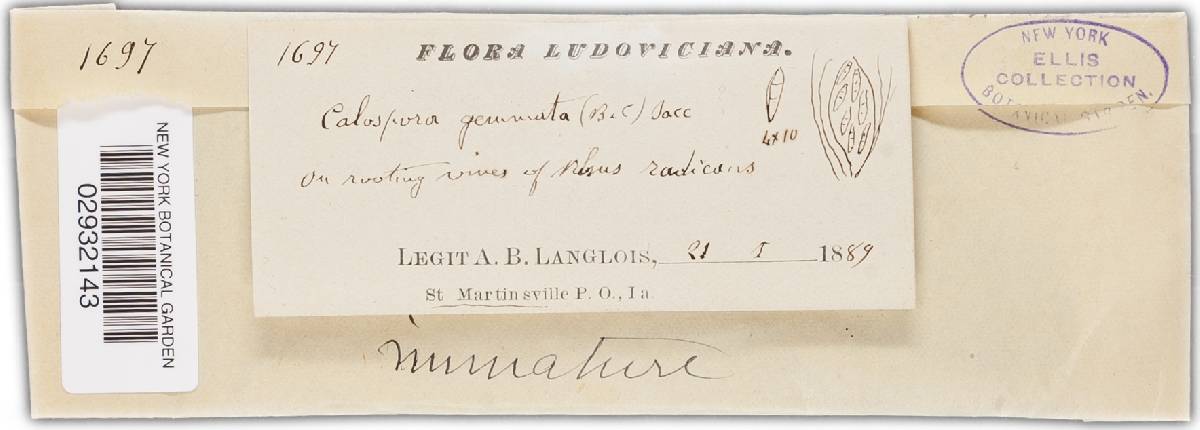 1697
1697
FLORA LUDOVICIANA.
Calospora gemmata (B&C) Sacc
4x10
on rooting vines of Rhus radicans
LEGIT A. B. LANGLOIS, 21 I 1889
St Martinsville P. O., La
Immature
NEW YORK
ELLIS
COLLECTION
BOTANICAL GARDEN.
NEW YORK BOTANICAL GARDEN
02932143